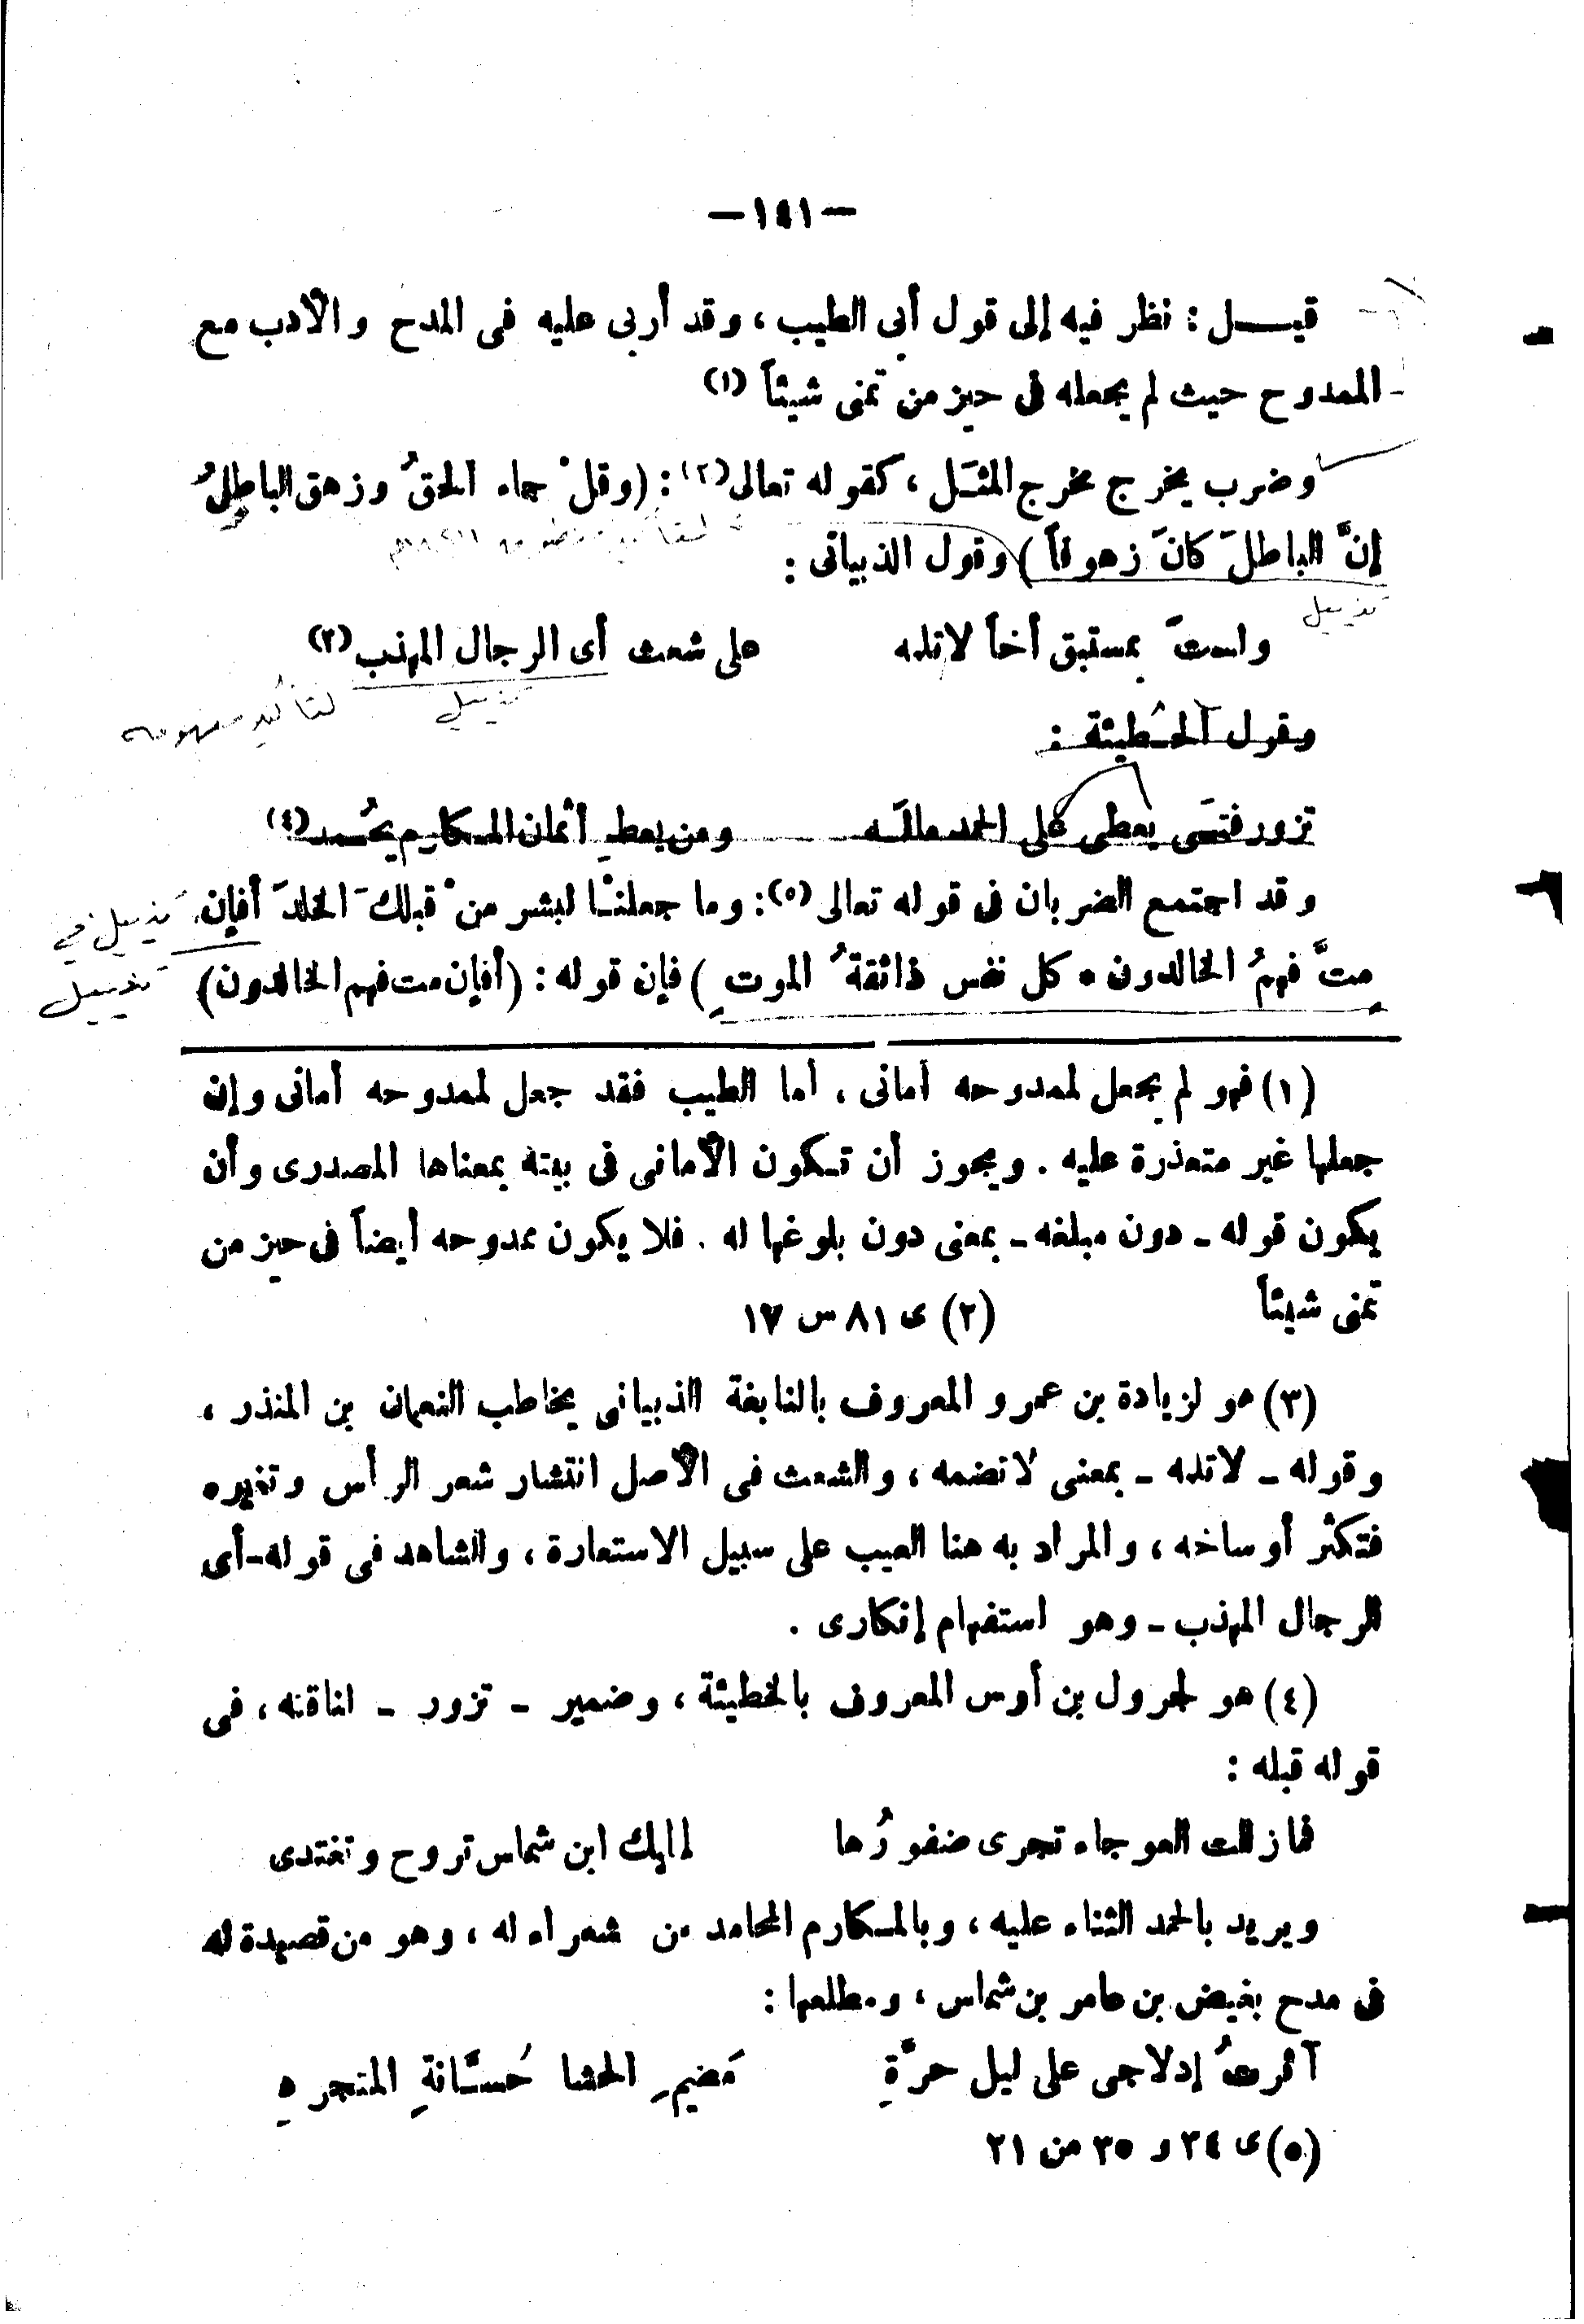 —١٤١—
قيـــل : نظر فيه إلى قول أبى الطيب ، وقد أربى عليه فى المدح والأدب مع
الممدوح حيث لم يجعله فى حيز من تمنى شيئاً (١)
وضرب يخرج مخرج المثَل ، كقوله تعالى (٢) : (وقلْ جاء الحقُّ وزهق الباطلُ
إنَّ الباطلَ كانَ زهوقاً ) وقول الذبيانى :
تذييل
ولستَ بمستبق أخاً لا تلمه على شعث أى الرجال المهذب (٣)
تذييل لتأكيد مفهومه
وقول الحُطيئة :
تزور فتَى يعطى على الحمد مالَه ومن يعطِ أثمان المكارم يُحمد (٤)
وقد اجتمع الضربان فى قوله تعالى (٥) : وما جعلنا لبشر منْ قبلكَ الخلدَ أفإن
تذييل في
متَّ فهمُ الخالدون ٥ كل نفس ذائقةُ الموتِ ) فإن قوله : (أفإن مت فهم الخالدون)
تذييل
(١) فهو لم يجعل لممدوحه أمانى ، أما الطيب فقد جعل لممدوحه أمانى وإن
جعلها غير متعذرة عليه . ويجوز أن تكون الأمانى فى بيته بمعناها المصدرى وأن
يكون قوله ـ دون مبلغه ـ بمعنى دون بلوغها له . فلا يكون ممدوحه أيضاً فى حيز من
تمنى شيئاً (٢) ى ٨١ س ١٧
(٣) هو لزيادة بن عمرو المعروف بالنابغة الذبيانى يخاطب النعمان بن المنذر ،
وقوله ـ لا تلمه ـ بمعنى لا تضمه ، والشعث فى الأصل انتشار شعر الرأس وتغيره
فتكثر أوساخه ، والمراد به هنا العيب على سبيل الاستعارة ، والشاهد فى قوله ـ أى
الرجال المهذب ـ وهو استفهام إنكارى .
(٤) هو لجرول بن أوس المعروف بالخطيئة ، وضمير ـ تزور ـ لناقته ، فى
قوله قبله :
فما زالت العوجاء تجرى ضفورُها إليك ابن شماس تروح وتغتدى
ويريد بالحمد الثناء عليه ، وبالمكارم المحامد من شعراء له ، وهو من قصيدة له
فى مدح بغيض بن عامر بن شماس ، ومطلعها :
آثرتُ إدلاجى على ليل حرَّةٍ هَضيمِ الحشا حُسَّانةِ المتجردِ
(٥) ى ٣٤ و ٣٥ من ٢١